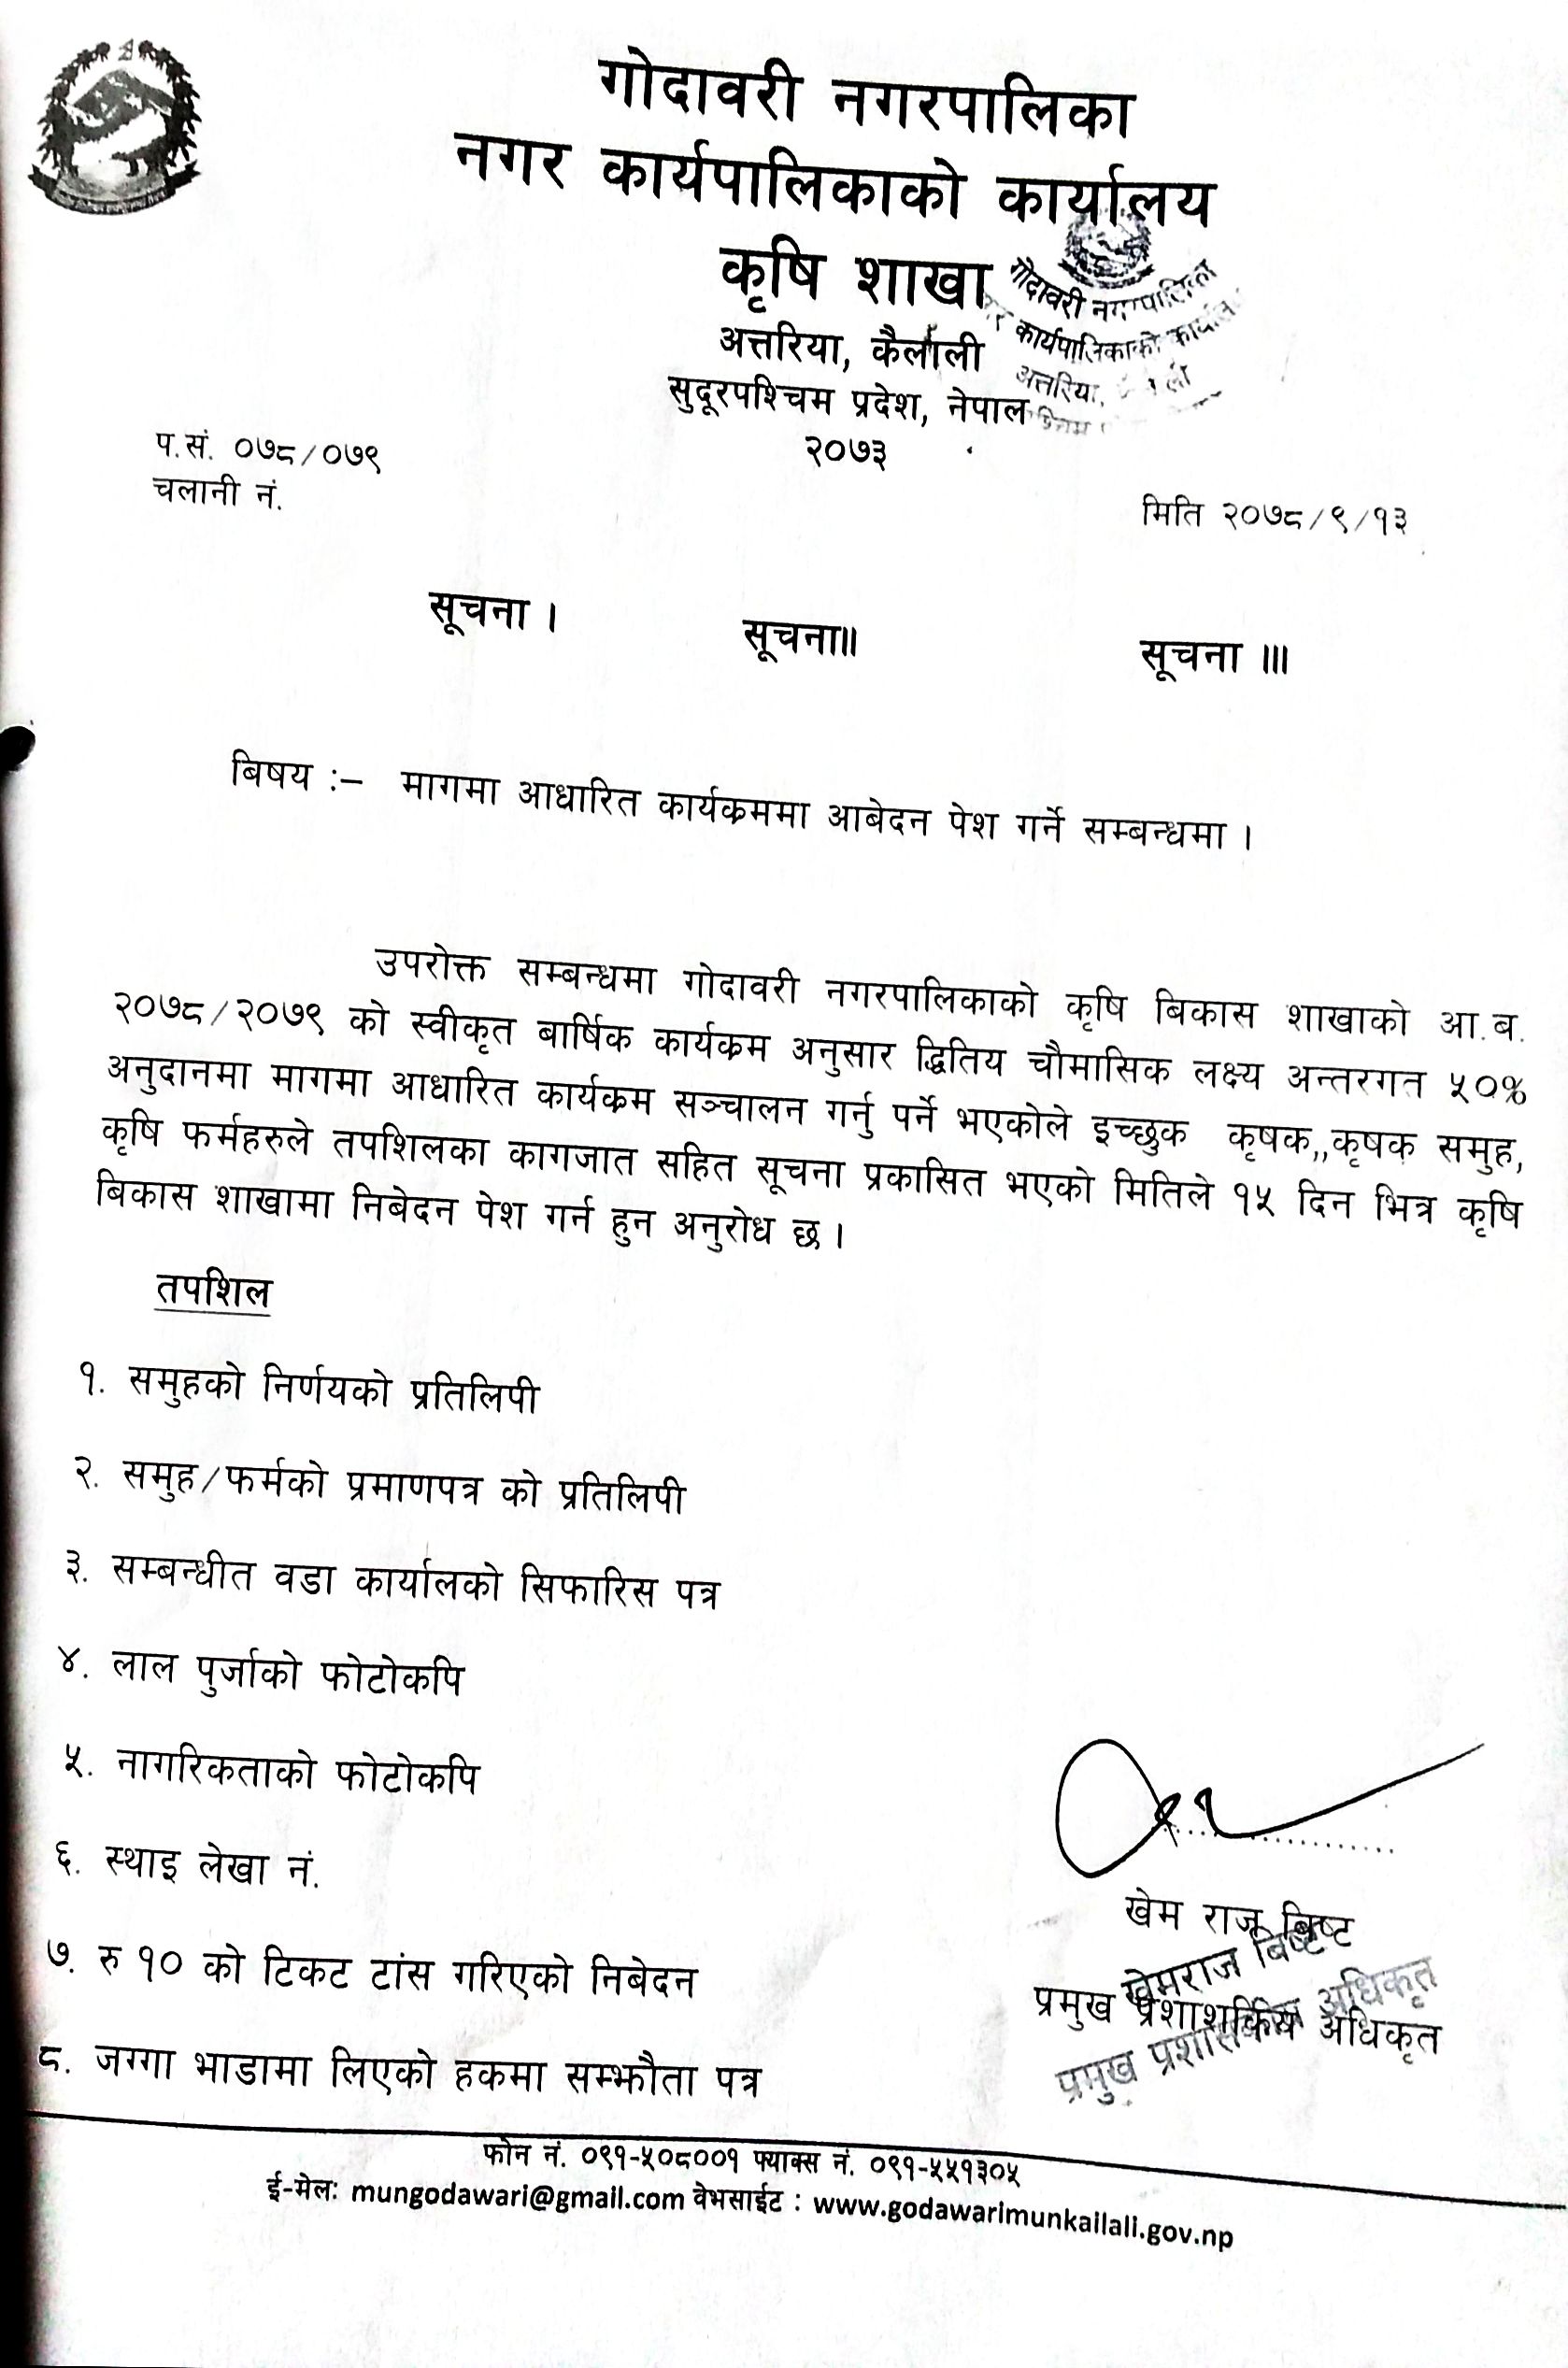 गोदावरी नगरपालिका
नगर कार्यपालिकाको कार्यालय
कृषि शाखा
अत्तरिया, कैलाली
सुदूरपश्चिम प्रदेश, नेपाल
२०७३
गौदावरी नगरपालिका
कार्यपालिकाको
अत्तरिया,
प.सं. ०७८/०७९
चलानी नं.
मिति २०७८/९/१३
सूचना । सूचना॥ सूचना ॥।
बिषय :– मागमा आधारित कार्यक्रममा आबेदन पेश गर्ने सम्बन्धमा ।
उपरोक्त सम्बन्धमा गोदावरी नगरपालिकाको कृषि बिकास शाखाको आ.ब.
२०७८/२०७९ को स्वीकृत बार्षिक कार्यक्रम अनुसार द्धितिय चौमासिक लक्ष्य अन्तरगत ५०%
अनुदानमा मागमा आधारित कार्यक्रम सञ्चालन गर्नु पर्ने भएकोले इच्छुक कृषक,,कृषक समुह,
कृषि फर्महरुले तपशिलका कागजात सहित सूचना प्रकासित भएको मितिले १५ दिन भित्र कृषि
बिकास शाखामा निबेदन पेश गर्न हुन अनुरोध छ ।
तपशिल
१. समुहको निर्णयको प्रतिलिपी
२. समुह/फर्मको प्रमाणपत्र को प्रतिलिपी
३. सम्बन्धीत वडा कार्यालको सिफारिस पत्र
४. लाल पुर्जाको फोटोकपि
५. नागरिकताको फोटोकपि
६. स्थाइ लेखा नं.
७. रु १० को टिकट टांस गरिएको निबेदन
८. जग्गा भाडामा लिएको हकमा सम्झौता पत्र
खेम राज बिष्ट
खेमराज बिष्ट
प्रमुख प्रशाशकिय अधिकृत
प्रमुख प्रशासकीय अधिकृत
फोन नं. ०९१-५०८००१ फ्याक्स नं. ०९१-५५१३०५
ई-मेल: mungodawari@gmail.com वेभसाईट : www.godawarimunkailali.gov.np